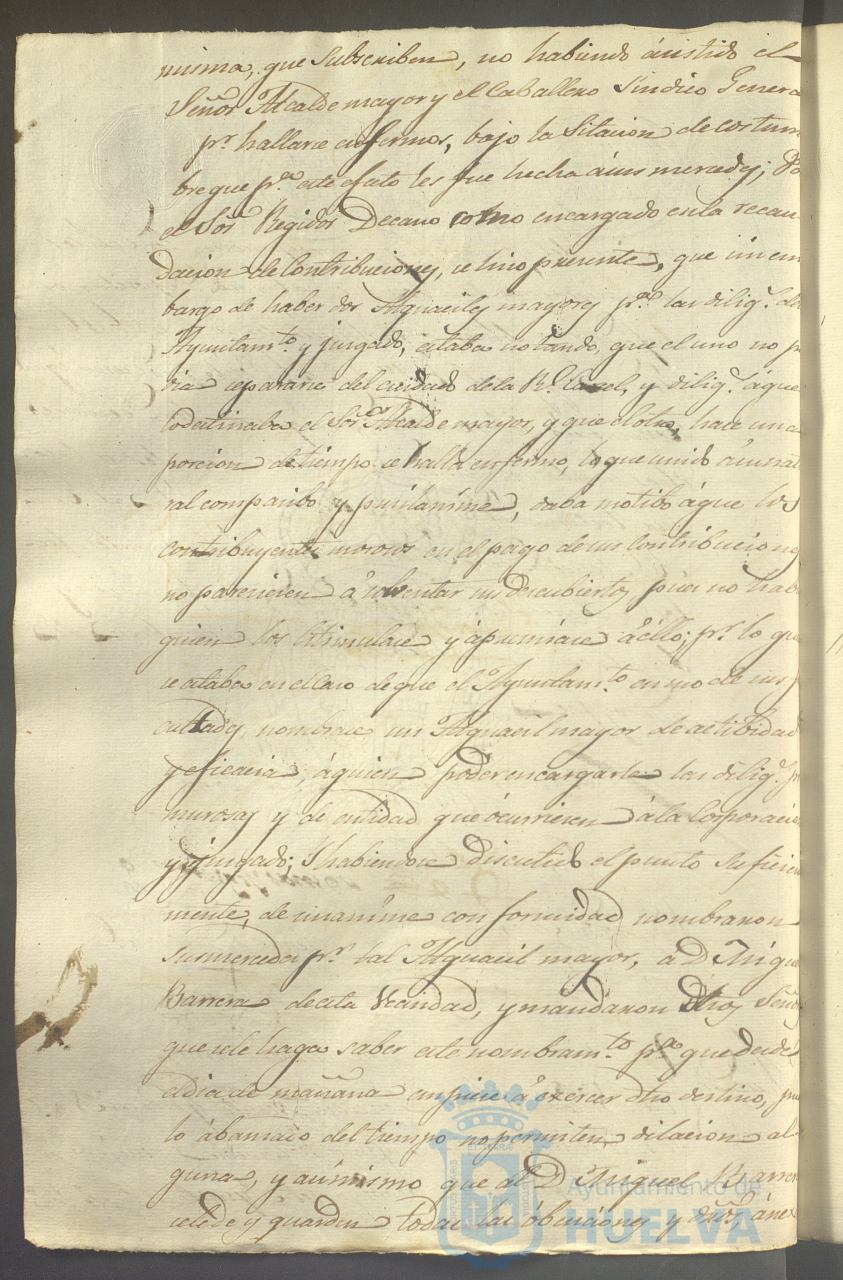 misma, que subscriben, no habiendo ásistido el
Señor Alcalde mayor y el Caballero Sindico Genera
pr. hallarse enfermos, bajo la Sitacion de costum
bre que pa. este efecto les fue hecha á sus mercedes; Po
el Sor Regidor Decano como encargado en la recau
dacion de Contribuciones, se hizo presente, que sin em
bargo de haber dos Alguaciles mayores pa. las dilig.s del
Ayuntam.to y juzgado, estaba notando, que el uno no p
dia separarse del cuidado de la Rl. Carcel, y dilig.s á que
lo destinaba el Sor. Alcalde mayor, y que el otro, hace una
porcion de tiempo se halla enfermo, lo que unido á su nat
ral compasibo y pusilanime, daba motibo á que los
contribuyentes morosos en el pago de sus Contribuciones
no pareciesen á solbentar sus descubiertos, pues no hab
quien los estimulase y ápremiase á ello; pr. lo que
se estaba en el Caso de que el Ayuntam.to en uso de sus f
cultades, nombrase un Alguacil mayor de actibidad
y eficacia, á quien poder encargarle las dilig.s p
murosas y de entidad que ócurriesen á la Corporacio
y juzgado; Y habiendose Discutido el punto suficien
mente, de unanime conformidad nombraron
sus mercedes pr. tal Alguacil mayor, a D. Migue
Barrera de esta Vecindad, y mandaron Dhos Señor
que se le haga saber este nombram.to pa. que desde
el dia de mañana empiese á exercer dho destino, pu
lo ábansado del tiempo no permiten dilacion al
guna, y asímismo que al D. Miguel Barrer
se le de y guarden todas las óbenciones y dros áne
Ayuntamiento de
HUELVA